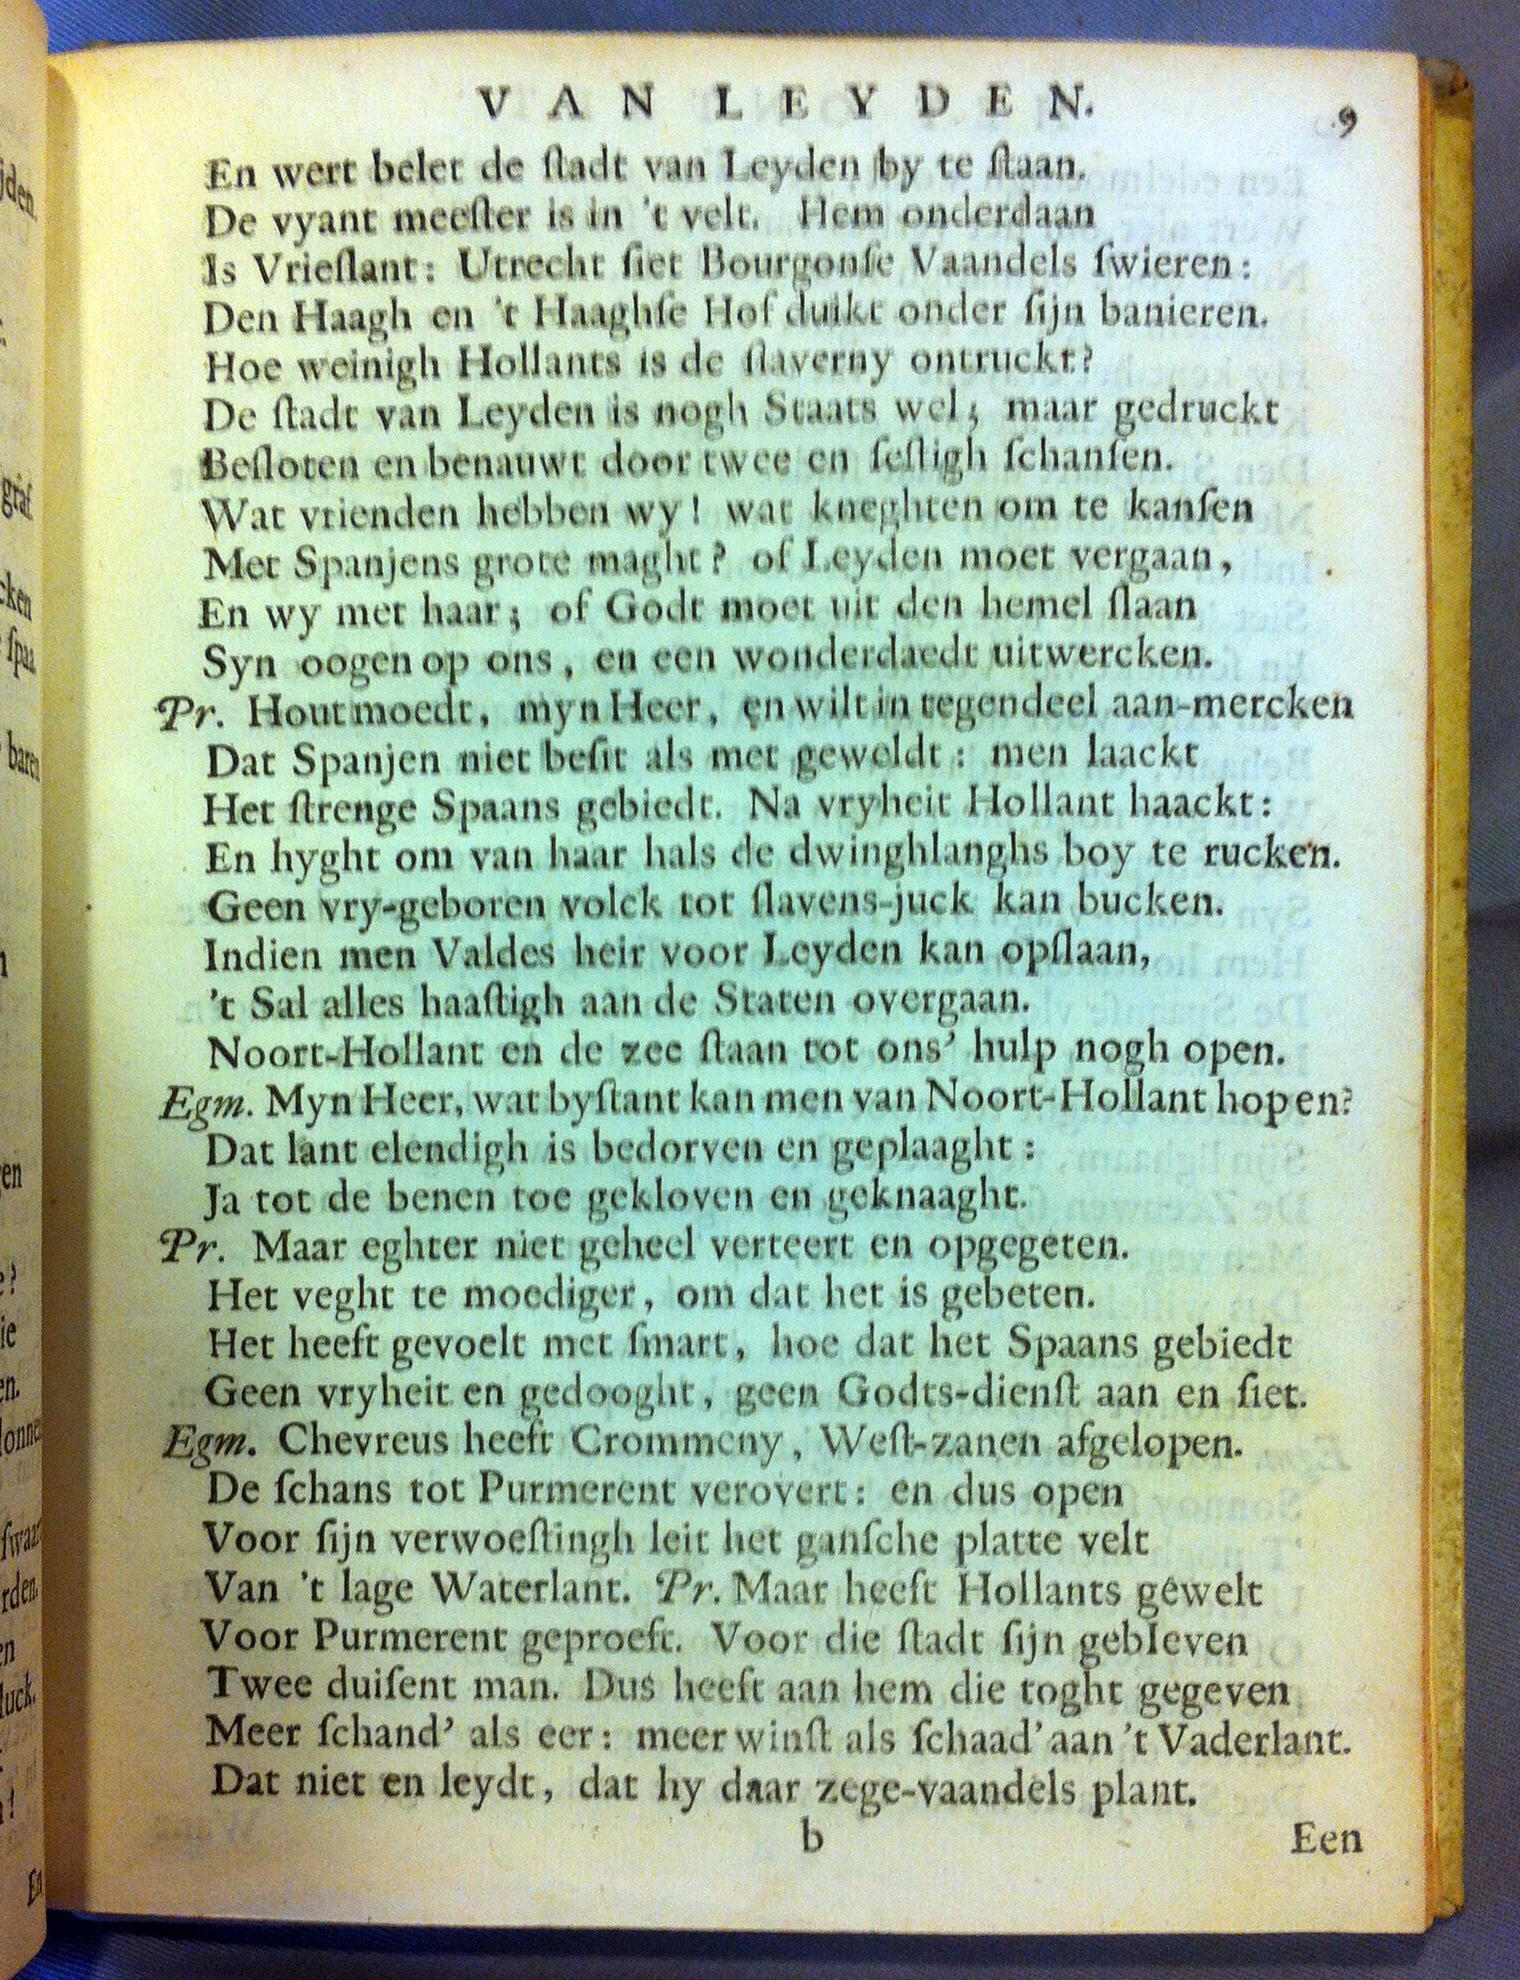 VAN LEYDEN. 9
En wert belet de ſtadt van Leyden by te ſtaan.
De vyant meeſter is in 't velt. Hem onderdaan
Is Vrieſlant: Utrecht ſiet Bourgonſe Vaandels ſwieren:
Den Haagh en 't Haaghſe Hof duikt onder ſijn banieren.
Hoe weinigh Hollants is de ſlaverny ontruckt?
De ſtadt van Leyden is nogh Staats wel; maar gedruckt
Beſloten en benauwt door twee en ſeſtigh ſchanſen.
Wat vrienden hebben wy! wat kneghten om te kanſen
Met Spanjens grote maght? of Leyden moet vergaan,
En wy met haar; of Godt moet uit den hemel ſlaan
Syn oogen op ons, en een wonderdaedt uitwercken.
Pr. Hout moedt, myn Heer, en wilt in tegendeel aan-mercken
Dat Spanjen niet beſit als met geweldt: men laackt
Het ſtrenge Spaans gebiedt. Na vryheit Hollant haackt:
En hyght om van haar hals de dwinghlanghs boy te rucken.
Geen vry-geboren volck tot ſlavens-juck kan bucken.
Indien men Valdes heir voor Leyden kan opſlaan,
't Sal alles haaſtigh aan de Staten overgaan.
Noort-Hollant en de zee ſtaan tot ons' hulp nogh open.
Egm. Myn Heer, wat byſtant kan men van Noort-Hollant hopen?
Dat lant elendigh is bedorven en geplaaght:
Ja tot de benen toe gekloven en geknaaght.
Pr. Maar eghter niet geheel verteert en opgegeten.
Het veght te moediger, om dat het is gebeten.
Het heeft gevoelt met ſmart, hoe dat het Spaans gebiedt
Geen vryheit en gedooght, geen Godts-dienſt aan en ſiet.
Egm. Chevreus heeft Crommeny, Weſt-zanen afgelopen.
De ſchans tot Purmerent verovert: en dus open
Voor ſijn verwoeſtingh leit het ganſche platte velt
Van 't lage Waterlant. Pr. Maar heeft Hollants gewelt
Voor Purmerent geproeft. Voor die ſtadt ſijn gebleven
Twee duiſent man. Dus heeft aan hem die toght gegeven
Meer ſchand' als eer: meer winſt als ſchaad' aan 't Vaderlant.
Dat niet en leydt, dat hy daar zege-vaandels plant.
b Een